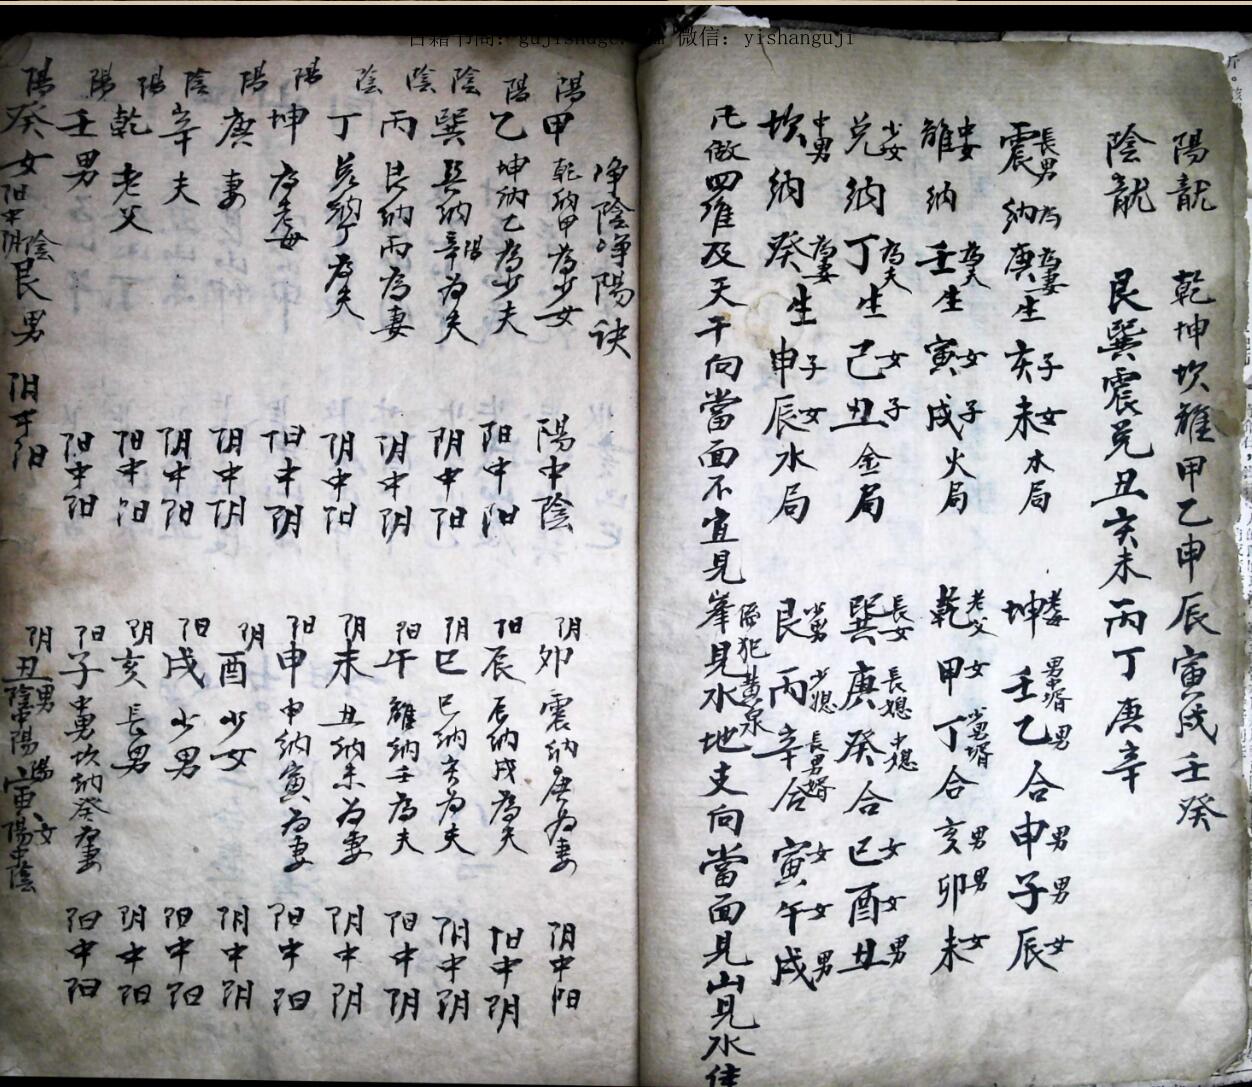 古籍书商：gujishuge. 微信：yishanguji
陽龍　乾坤坎離甲乙申辰寅戌壬癸
陰龍　艮巽震兌丑亥未丙丁庚辛
震長男納為庚為妻生亥子未女木局　坤老母壬男乙中婿合男申男子男辰女
離中女納壬為夫生寅女戌子火局　乾老父甲女丁少婿合亥男卯男未女
兌少女納丁為夫生己女丑子金局　巽長女庚長媳癸少媳合巳女酉女丑男
坎中男納癸為妻生申子辰女水局　艮少男丙少媳辛長男婿合寅女午女戌男
凡做四維及天干向當面不宜見峯見水恐犯黃泉地支向當面見山見水佳
净陰净陽诀
陽甲乾納甲為少女　陽中陰　阴卯震納庚为妻　阴中阳
陽乙坤納乙為少夫　阳中阳　阳辰辰納戌為夫　阳中阴
陰巽巽納辛陽為夫　阴中阳　阴巳巳納亥为夫　阴中阴
陰丙艮納丙為妻　阴中阴　阳午離納壬為夫　阳中阴
陰丁兌納丁為夫　阴中阳　阴未丑納未为妻　阴中阴
陽坤為老母　阳中阴　阳申申納寅为妻　阳中阳
陽庚妻　阴中阴　阴酉少女　阴中阴
陰辛夫　阴中阳　阳戌少男　阳中阳
陽乾老父　阳中阳　阴亥長男　阴中阳
陽壬男　阳中阳　阳子中男坎納癸为妻　阳中阳
陽癸女阳中阴　陰艮男　阴中阳　阴丑男陰中陽　陽寅女陽中陰